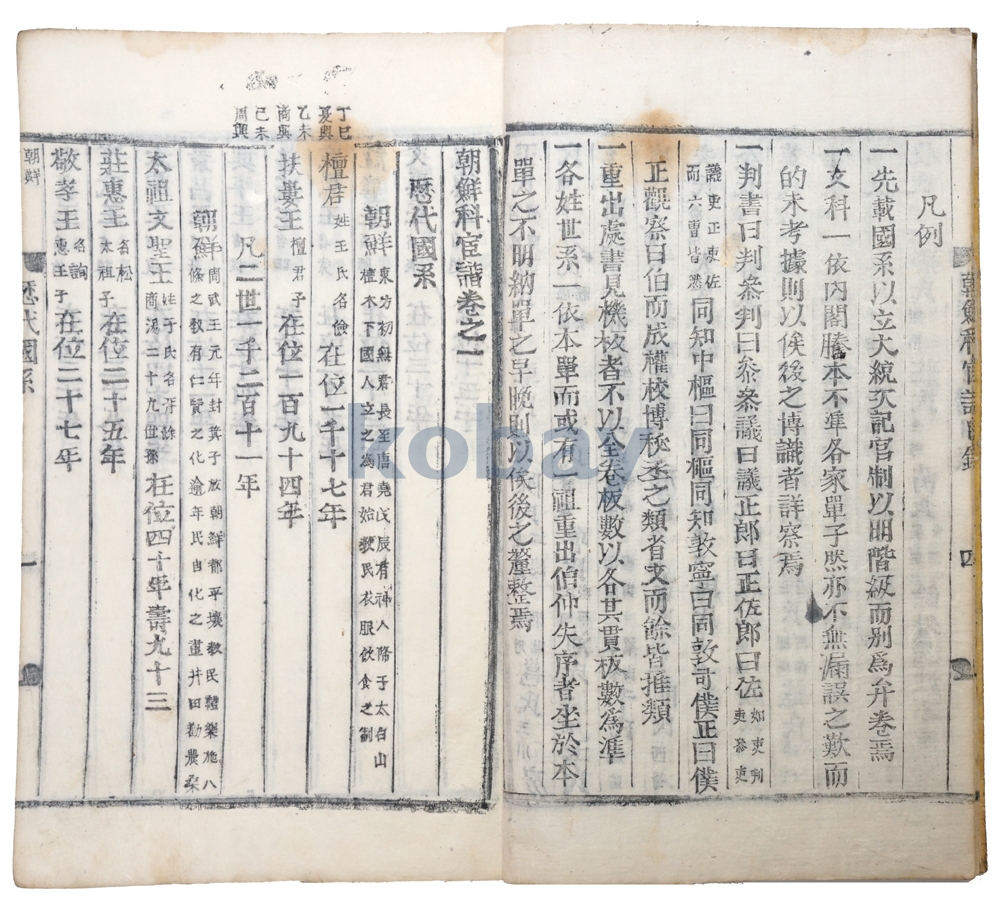 朝鮮科宦譜目錄
四
凡例
一先載國系以立大統次記官制以明階級而別爲弁卷焉
一文科一依內閣謄本不準各家單子然亦不無漏誤之歎而
的未考據則以俟後之博識者詳察焉
一判書曰判叅判曰叅叅議曰議正郎曰正佐郎曰佐 如吏判吏叅吏
議吏正吏佐而六曹皆悉 同知中樞曰同樞同知敦寧曰同敦司僕正曰僕
正觀察曰伯而成權校博秘丞之類省文而餘皆推類
一重出處書見機板者不以全卷板數以各其貫板數爲準
一各姓世系一依本單而或有一祖重出伯仲失序者坐於本
單之不明納單之早晚則以俟後之釐整焉
朝鮮科宦譜卷之一
歷代國系
朝鮮 東方初無君長至唐堯戊辰有神人降于太白山檀木下國人立之爲君始敎民衣服飮食之制
丁巳夏興
檀君 姓王氏名儉 在位一千十七年
乙未商興
扶婁王 檀君子 在位一百九十四年
己未周興
凡二世一千二百十一年
朝鮮 周武王元年封箕子於朝鮮都平壤敎民禮樂施八條之敎有仁賢之化逾年民自化之畫井田勸農桑
太祖文聖王 姓子氏名胥餘商湯二十九世孫 在位四十年壽九十三
莊惠王 名松太祖子 在位二十五年
敬孝王 名詢惠王子 在位二十七年
朝鮮
歷代國系
一
kobay